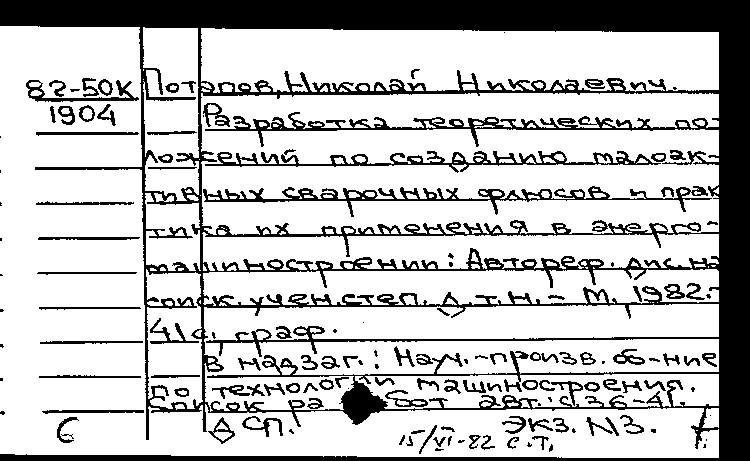 82-50К Потапов, Николай Николаевич.
1904 Разработка теоретических по-
ложений по созданию малоак-
тивных сварочных флюсов и прак
тика их применения в энерго-
машиностроении: Автореф. дис. на
соиск. учен. степ. д.т.н. - М., 1982.-
41 с., граф.
В надзаг.: Науч.-произв. об-ние
по технологии машиностроения.
Список работ авт.: с. 36-41.
6 ДСП. Экз. N3.
15/VI-82 с.т.